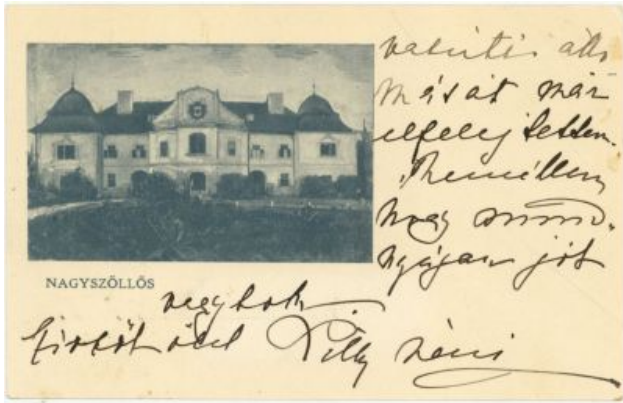 vasuti állo
mását már
elfelejtettem.
Remélem
hogy mind-
nyájan jól
NAGYSZŐLLŐS
vagytok
ölel Lilly néni